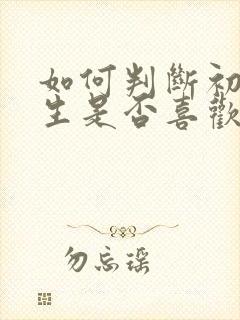 如何判斷初
生是否喜歡
勿忘瑶